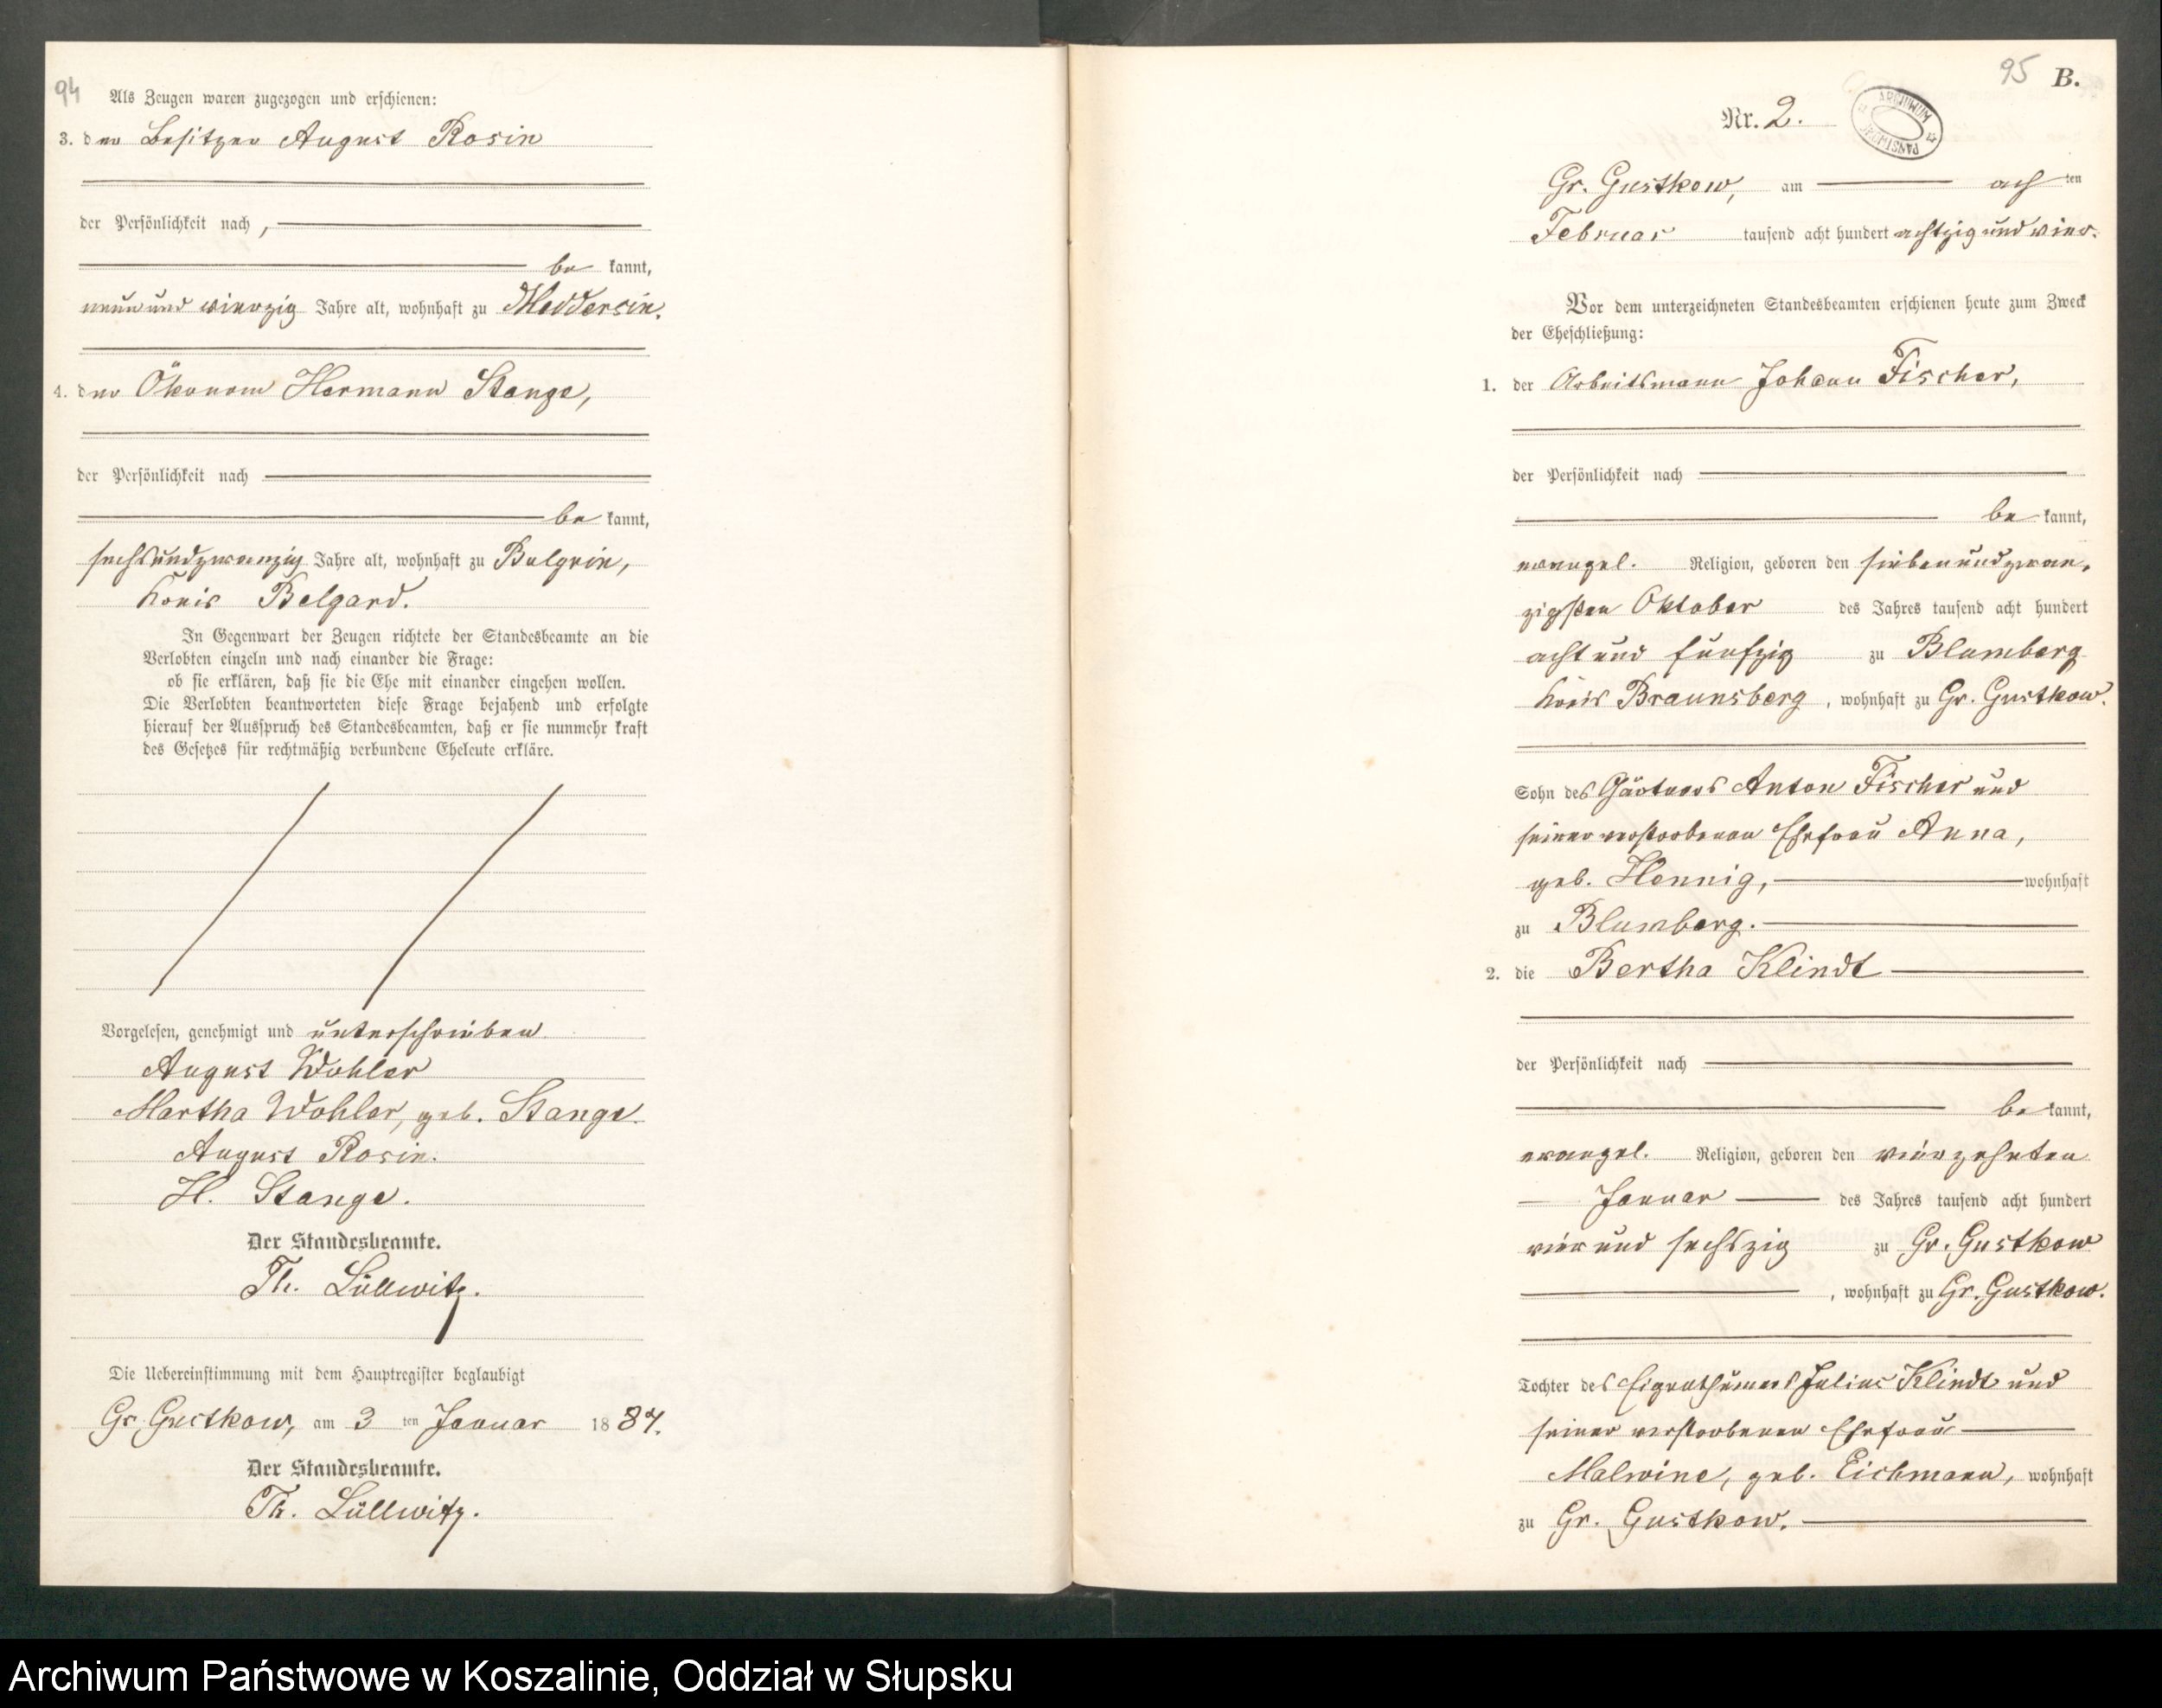 94
Als Zeugen waren zugezogen und erschienen:
3. der Besitzer August Rosin
der Persönlichkeit nach,
be kannt,
neun und vierzig Jahre alt, wohnhaft zu Meddersin.
4. der Ökonom Hermann Stange,
der Persönlichkeit nach
be kannt,
sechsundzwanzig Jahre alt, wohnhaft zu Bulgrin,
Kreis Belgard.
In Gegenwart der Zeugen richtete der Standesbeamte an die
Verlobten einzeln und nach einander die Frage:
ob sie erklären, daß sie die Ehe mit einander eingehen wollen.
Die Verlobten beantworteten diese Frage bejahend und erfolgte
hierauf der Ausspruch des Standesbeamten, daß er sie nunmehr kraft
des Gesetzes für rechtmäßig verbundene Eheleute erkläre.
Vorgelesen, genehmigt und unterschrieben.
August Wohler
Martha Wohler, geb. Stange.
August Rosin.
H. Stange.
Der Standesbeamte.
Th. Lüllwitz.
Die Uebereinstimmung mit dem Hauptregister beglaubigt
Gr. Gustkow, am 3 ten Januar 18 84.
Der Standesbeamte.
Th. Lüllwitz.
95 B.
Nr. 2.
ARCHIWUM PAŃSTWOWE
Gr. Gustkow, am ach ten
Februar tausend acht hundert achtzig und vier.
Vor dem unterzeichneten Standesbeamten erschienen heute zum Zweck
der Eheschließung:
1. der Arbeitsmann Johann Fischer,
der Persönlichkeit nach
be kannt,
evangel. Religion, geboren den siebenundzwan-
zigsten Oktober des Jahres tausend acht hundert
acht und fünfzig zu Blumberg
Kreis Braunsberg, wohnhaft zu Gr. Gustkow.
Sohn des Gärtners Anton Fischer und
seiner verstorbenen Ehefrau Anna,
geb. Hennig, wohnhaft
zu Blumberg.
2. die Bertha Klindt
der Persönlichkeit nach
be kannt,
evangel. Religion, geboren den vierzehnten
Januar des Jahres tausend acht hundert
vier und sechszig zu Gr. Gustkow
, wohnhaft zu Gr. Gustkow.
Tochter des Eigenthümers Julius Klindt und
seiner verstorbenen Ehefrau
Malwine, geb. Eichmann, wohnhaft
zu Gr. Gustkow.
Archiwum Państwowe w Koszalinie, Oddział w Słupsku